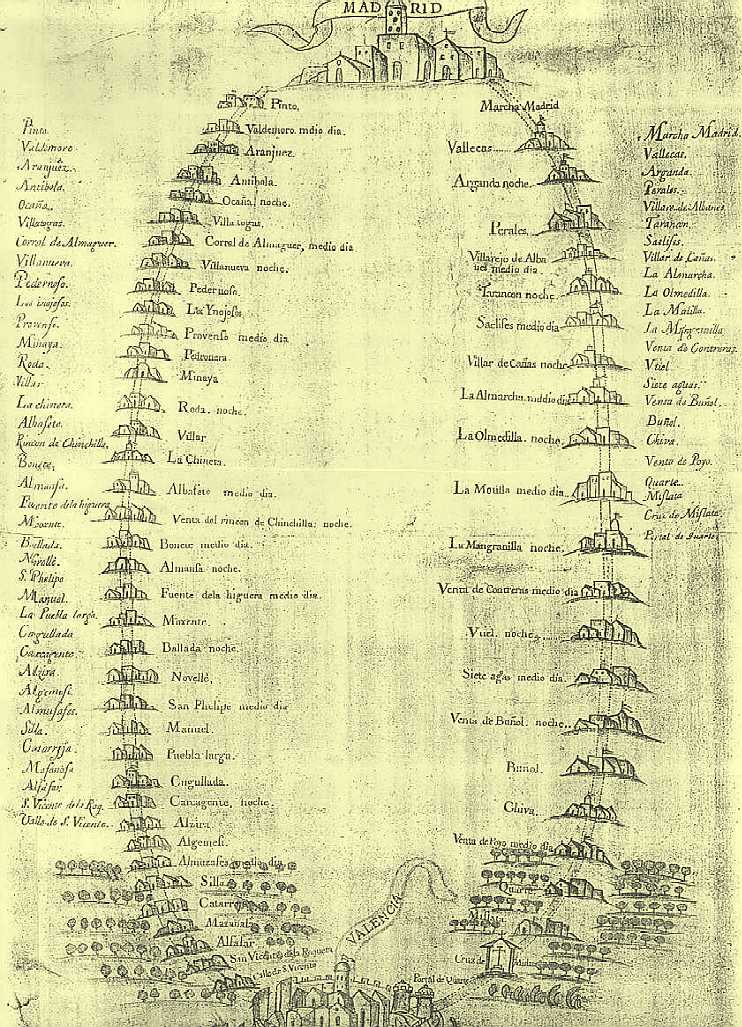 MADRID
Pinto.
Valdemoro
Aranjuez.
Antibola.
Ocaña.
Villatogas.
Corral de Almaguer.
Villanueva.
Pedernoso.
Los inojosos.
Provenso.
Minaya.
Roda.
Villar
La chinera.
Albasete.
Rincon de Chinchilla.
Bonete.
Almansa.
Fuente dela higuera
Moxente.
Ballada.
Novellè.
S. Phelipe
Manuel.
La Puebla larga.
Cogullada
Carcagente.
Alzira.
Algemesi.
Almusafes.
Silla.
Catarrija.
Masanasa
Alfafar
S. Vicente dela Roq.
Calle de S. Vicente.
Pinto.
Valdemoro. medio dia.
Aranjuez.
Antibola
Ocaña, noche.
Villa togus.
Corral de Almaguer, medio dia
Villanueva noche.
Pedernosa.
Los Ynojosos.
Provenso medio dia
Pedronara
Minaya
Roda. noche.
Villar
La Chinera.
Albasete medio dia.
Venta del rincon de Chinchilla. noche.
Bonete medio dia.
Almansa noche.
Fuente dela higuera medio dia.
Moxente.
Ballada noche.
Novellè,
San Phelipe medio dia
Manuel.
Puebla larga.
Cugullada.
Carcagente, noche.
Alzira
Algemesi.
Almuzafes medio dia
Silla
Catarroja
Masanasa
Alfafar
San Vicente dela Roqueta
Calle de S. Vicente
Marcha Madrid
Vallecas
Arganda noche.
Perales.
Villarejo de Alba
nel medio dia
Tarancon noche.
Saelises medio dia
Villar de Cañas noche
La Almarcha. medio dia
La Olmedilla. noche.
La Motilla medio dia.
La Mangranilla noche.
Venta de Contreras medio dia
Vtiel. noche
Siete agas medio dia.
Venta de Buñol. noche.
Buñol.
Chiva.
Venta de Poyo medio dia
Quarte
Mislata
Cruz de Mislata
Portal de Quarte
VALENCIA
Marcha Madrid.
Vallecas.
Arganda.
Perales.
Villare de Albanel
Tarancon.
Saelises.
Villar de Cañas.
La Almarcha.
La Olmedilla.
La Motilla.
La Mingranilla
Venta de Contreras.
Vtiel.
Siete aguas.
Venta de Buñol.
Buñol.
Chiva.
Venta de Poyo.
Quarte.
Mislata
Cruz de Mislata.
Portal de Quarte